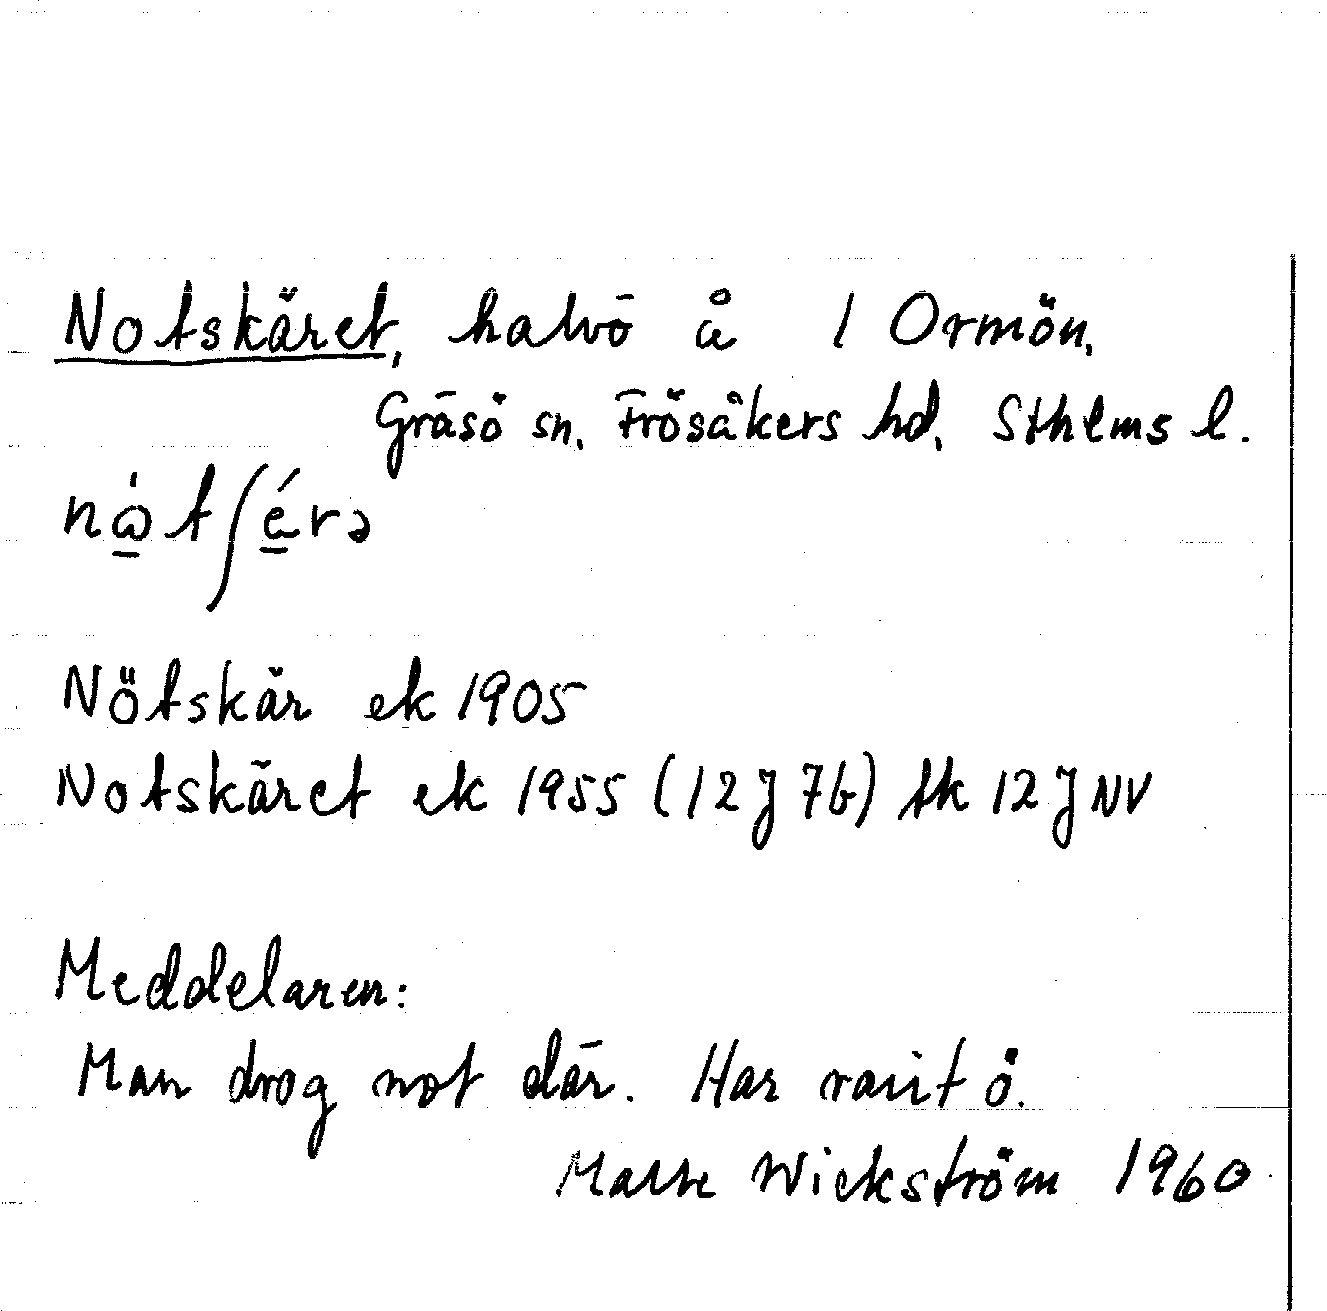 Notskäret, halvö å 1 Ormön,
Gräsö sn, Frösåkers hd, Sthlms l.
Nötskär ek 1905
Notskäret ek 1955 (12J 7b) tk 12J NV
Meddelaren:
Man drog not där. Har varit ö.
Wickström 1960